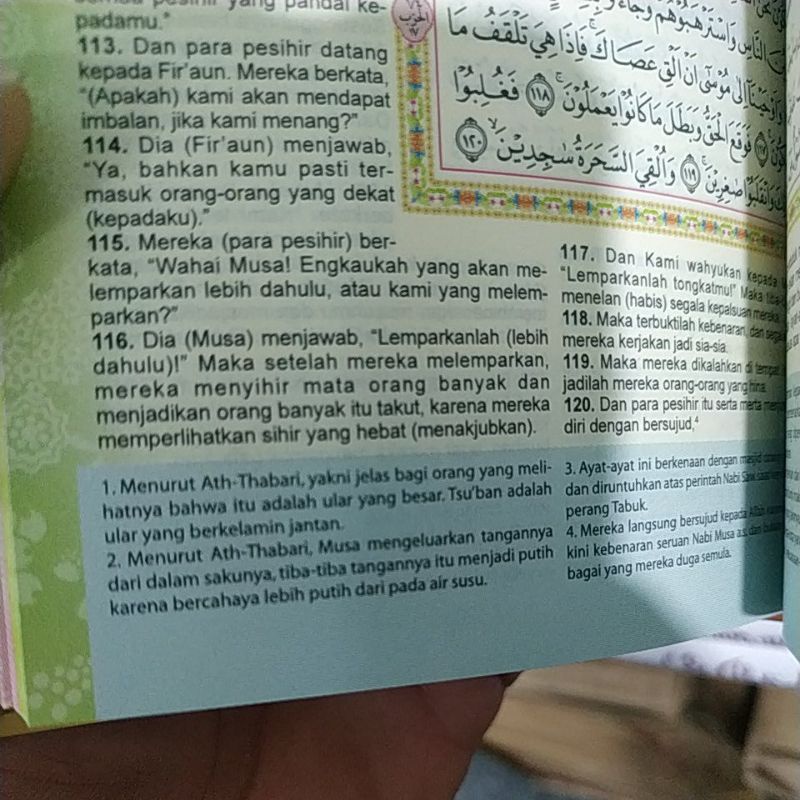 padamu."
113. Dan para pesihir datang
kepada Fir'aun. Mereka berkata,
"(Apakah) kami akan mendapat
imbalan, jika kami menang?"
114. Dia (Fir'aun) menjawab,
"Ya, bahkan kamu pasti ter-
masuk orang-orang yang dekat
(kepadaku)."
115. Mereka (para pesihir) ber-
kata, "Wahai Musa! Engkaukah yang akan me-
lemparkan lebih dahulu, atau kami yang melem-
parkan?"
116. Dia (Musa) menjawab, "Lemparkanlah (lebih
dahulu)!" Maka setelah mereka melemparkan,
mereka menyihir mata orang banyak dan
menjadikan orang banyak itu takut, karena mereka
memperlihatkan sihir yang hebat (menakjubkan).
النَّاسِ وَاسْتَرْهَبُوْهُمْ وَجَاۤءُوْ
وَاَوْحَيْنَآ اِلٰى مُوْسٰٓى اَنْ اَلْقِ عَصَاكَۚ فَاِذَا هِيَ تَلْقَفُ مَا
فَوَقَعَ الْحَقُّ وَبَطَلَ مَا كَانُوْا يَعْمَلُوْنَۚ ١١٨ فَغُلِبُوْا
وَانْقَلَبُوْا صٰغِرِيْنَۚ ١١٩ وَاُلْقِيَ السَّحَرَةُ سٰجِدِيْنَۙ ١٢٠
117. Dan Kami wahyukan kepada
"Lemparkanlah tongkatmu!" Maka
menelan (habis) segala kepalsuan mereka
118. Maka terbuktilah kebenaran, dan
mereka kerjakan jadi sia-sia.
119. Maka mereka dikalahkan di tempat
jadilah mereka orang-orang yang hina.
120. Dan para pesihir itu serta merta
diri dengan bersujud,⁴
1. Menurut Ath-Thabari, yakni jelas bagi orang yang meli-
hatnya bahwa itu adalah ular yang besar. Tsu'ban adalah
ular yang berkelamin jantan.
2. Menurut Ath-Thabari, Musa mengeluarkan tangannya
dari dalam sakunya, tiba-tiba tangannya itu menjadi putih
karena bercahaya lebih putih dari pada air susu.
3. Ayat-ayat ini berkenaan dengan masjid
dan diruntuhkan atas perintah Nabi
perang Tabuk.
4. Mereka langsung bersujud kepada Allah
kini kebenaran seruan Nabi Musa a.s. dan
bagai yang mereka duga semula.